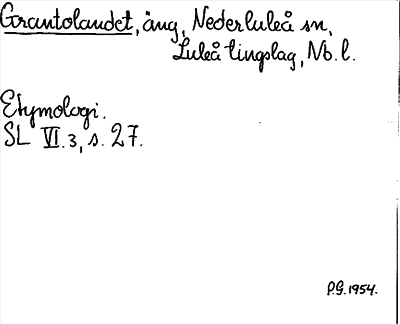 Grantolandet, äng, Nederluleå sn,
Luleå tingslag, Nb. l.
Etymologi.
SL VI.3, s. 27.
P.G. 1954.